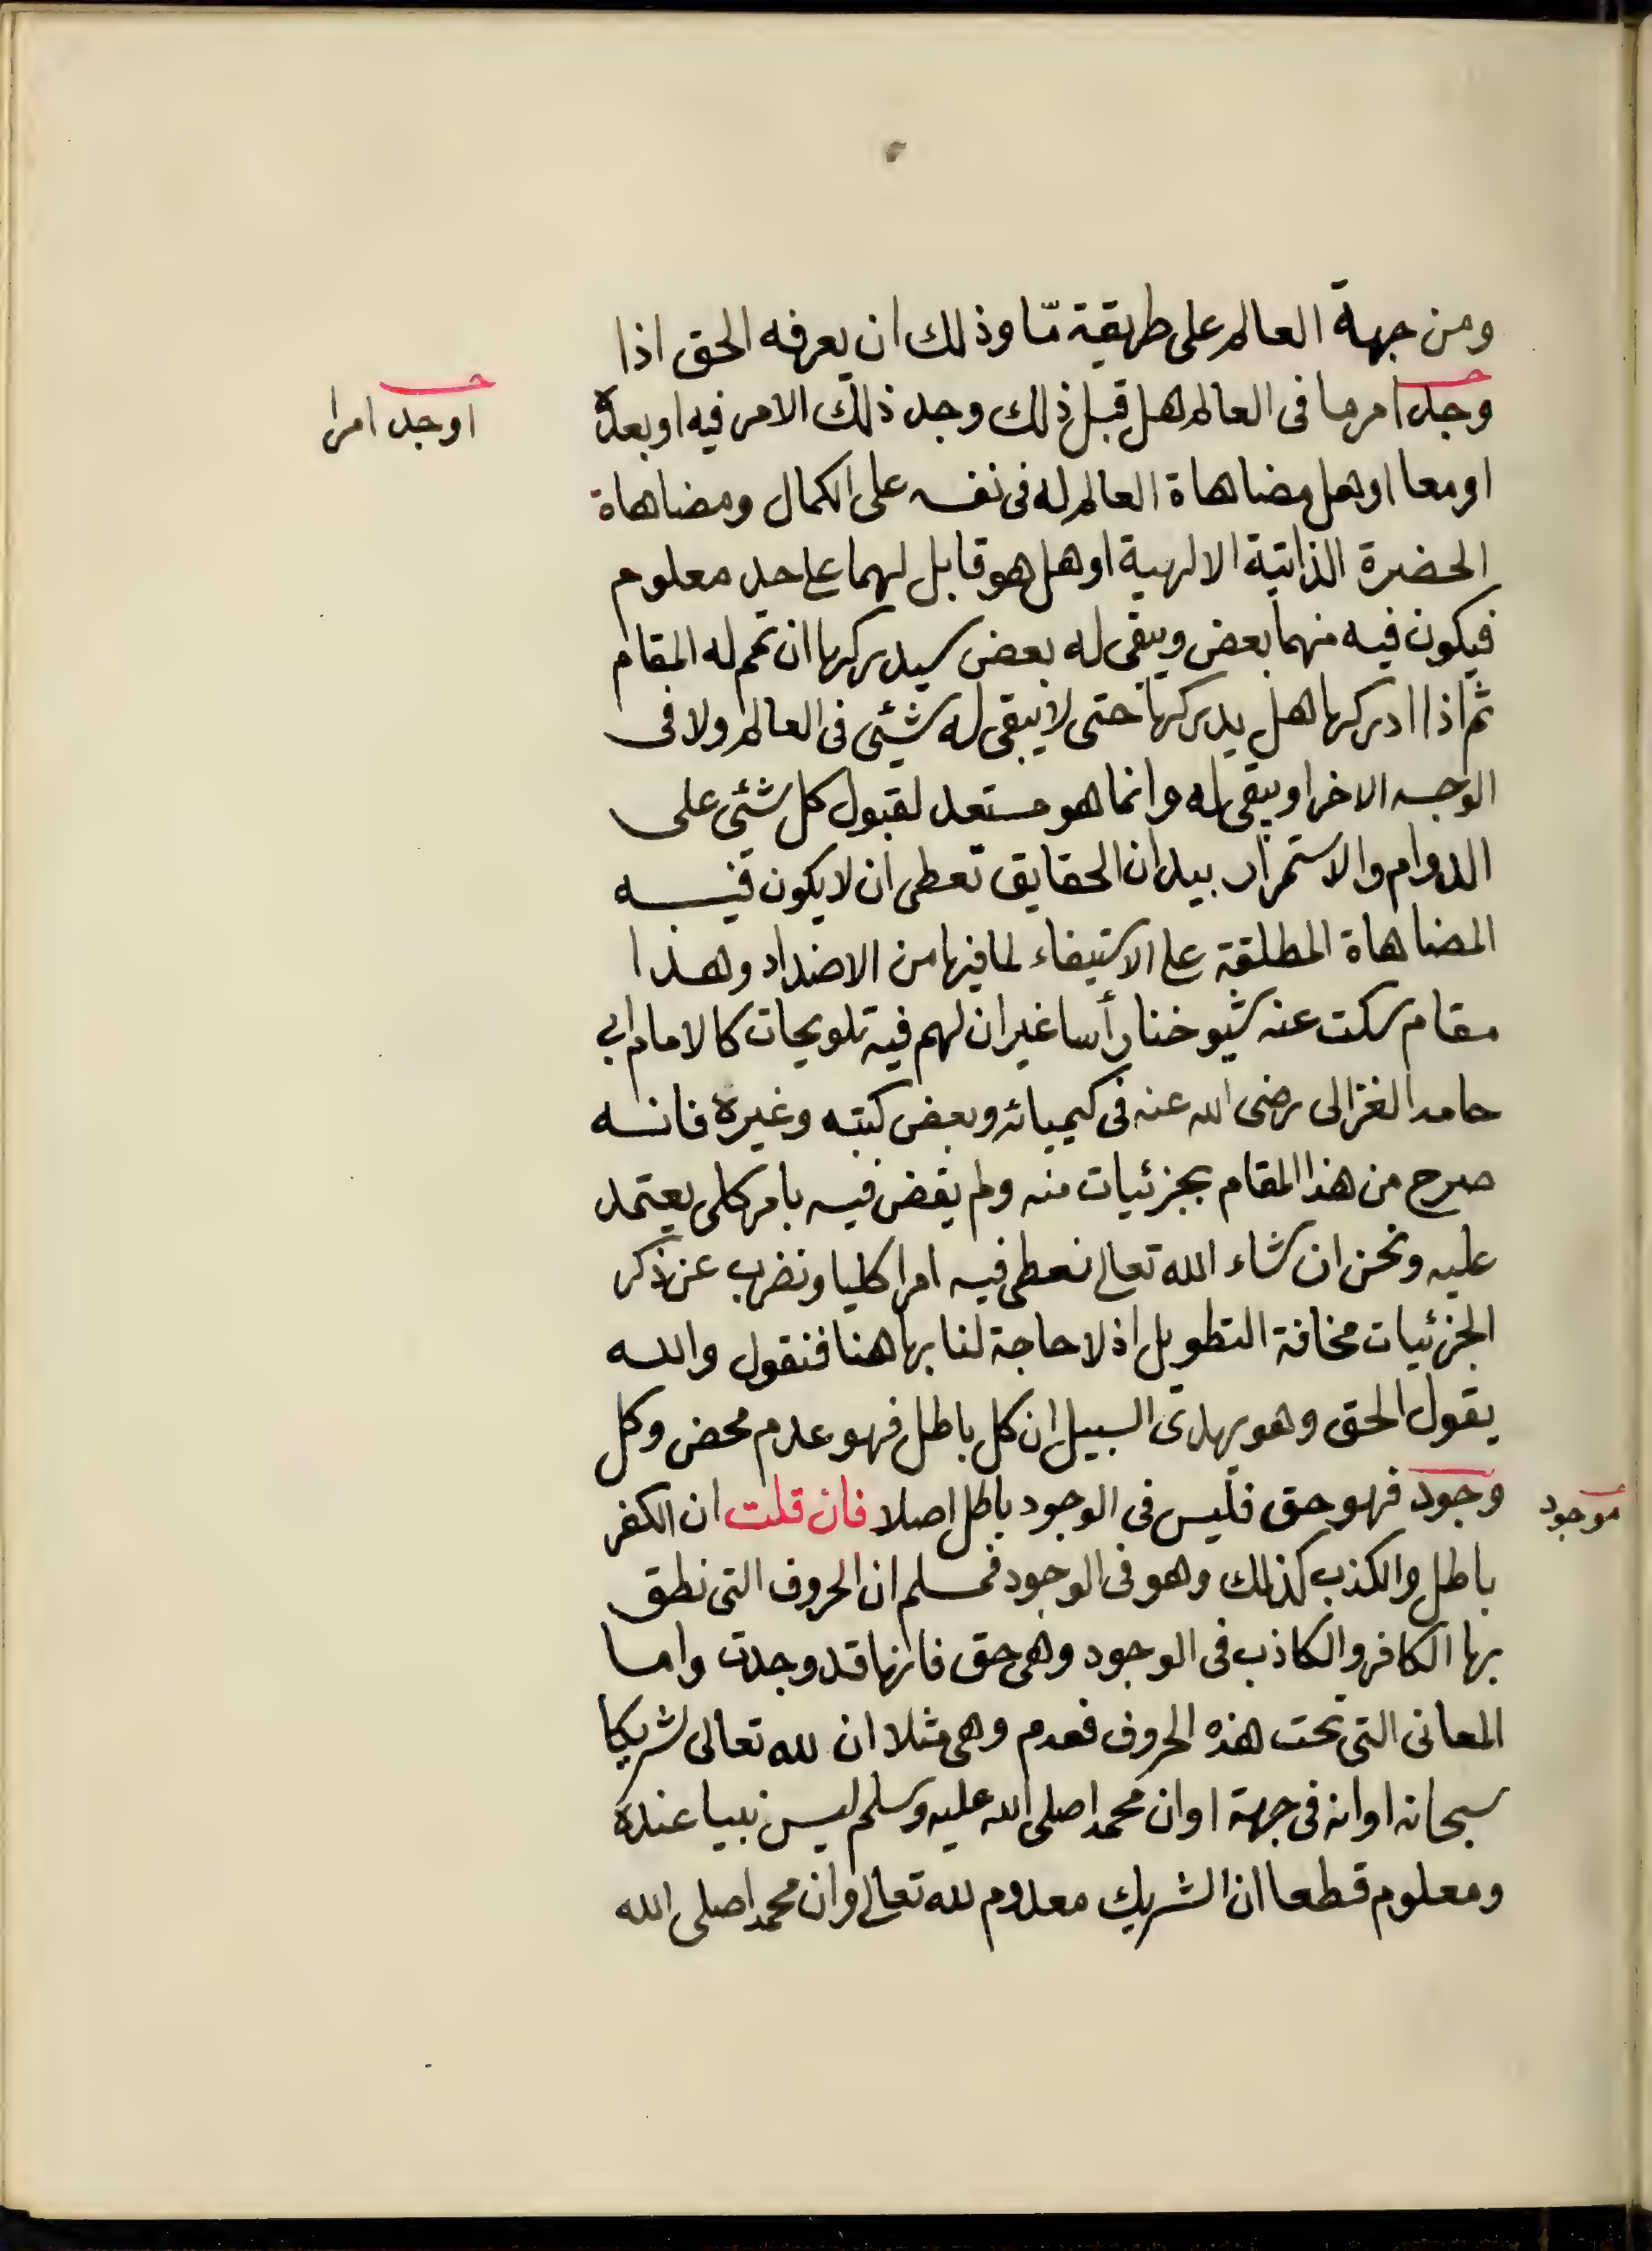 ومن جهة العالم على طريقة مّا وذلك ان يعرفه الحق اذا
وجد امر ما فى العالم هل قبل ذلك وجد ذلك الامر فيه او بعده
اوجد امرا
او معا او هل مضاهاة العالم له فى نفسه على الكمال ومضاهاة
الحضرة الذاتية الالهية او هل هو قابل لهما على حد معلوم
فيكون فيه منهما بعض ويبقى له بعض سيدركها ان تمم له المقام
ثم اذا ادركها هل يدركها حتى لا يبقى له شئى فى العالم ولا فى
الوجه الاخر او يبقى له وانما هو مستعد لقبول كل شئى على
الدوام والاستمرار بيد ان الحقايق تعطى ان لا يكون فيه
المضاهاة المطلقة على الاستيفاء لما فيها من الاضداد وهذا
مقام سكت عنه شيوخنا رأسا غير ان لهم فيه تلويحات كالامام ابى
حامد الغزالى رضى الله عنه فى كيميائه وبعض كتبه وغيره فانه
صرح من هذا المقام بجزئيات منه ولم يقض فيه بامر كلى يعتمد
عليه ونحن ان شاء الله تعالى نعطى فيه امرا كليا ونضرب عن ذكر
الجزئيات مخافة التطويل اذ لا حاجة لنا بها هنا فنقول والله
يقول الحق وهو يهدى السبيل ان كل باطل فهو عدم محض وكل
وجود فهو حق فليس فى الوجود باطل اصلا فان قلت ان الكفر
موجود
باطل والكذب كذلك وهو فى الوجود فمسلم ان الحروف التى نطق
بها الكافر والكاذب فى الوجود وهى حق فانها قد وجدت واما
المعانى التى تحت هذه الحروف فعدم وهى مثلا ان لله تعالى شريكا
سبحانه او انه فى جهة او ان محمدا صلى الله عليه وسلم ليس نبيا عنده
ومعلوم قطعا ان الشريك معدوم لله تعالى وان محمدا صلى الله